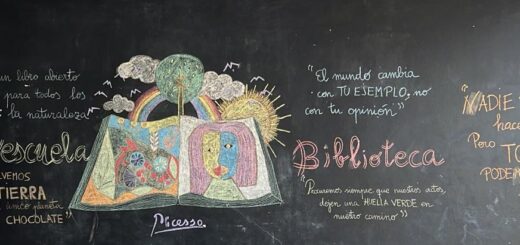 un libro abierto
para todos los
la naturaleza
escuela
VEMOS
TIERRA
único planeta
CHOCOLATE"
Picasso
"El mundo cambia
con TU EJEMPLO, no
con tu opinión"
Biblioteca
"Hacemos siempre que nuestros actos,
dejen una HUELLA VERDE en
nuestro camino"
¡NADIE
hace
Pero TO
PODEM